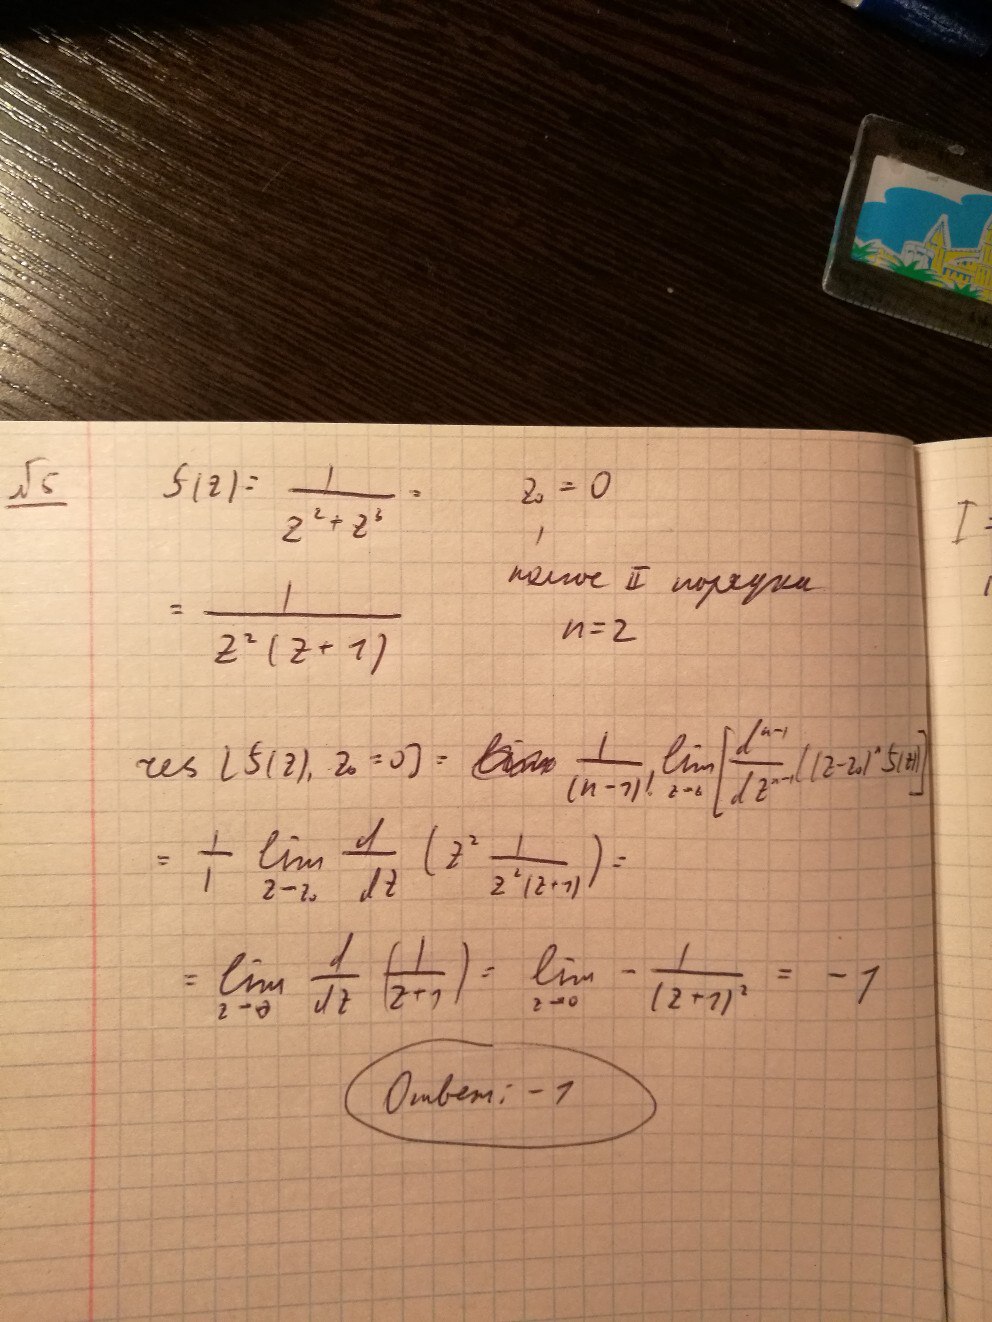 №5 f(z) = 1/(z² + z³) = z₀ = 0
полюс II порядка
= 1/(z²(z + 1)) n=2
res [f(z), z₀ = 0] = 1/(n-1)! lim z→z₀ [dⁿ⁻¹/dzⁿ⁻¹ ((z-z₀)ⁿ f(z))]
= 1/1 lim z→z₀ d/dz (z² 1/(z²(z+1))) =
= lim z→0 d/dz (1/(z+1)) = lim z→0 - 1/(z+1)² = -1
Ответ: -1
I =